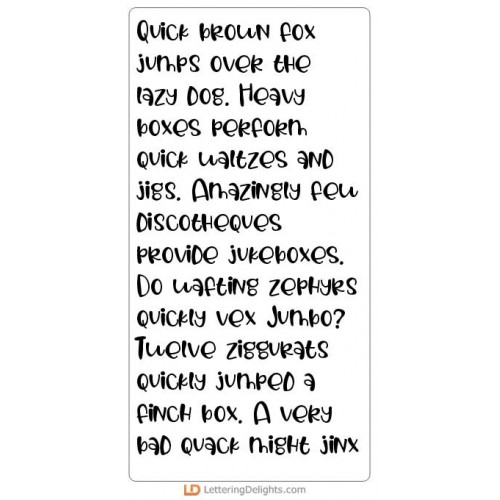 Quick brown fox
jumps over the
lazy dog. Heavy
boxes perform
quick waltzes and
jigs. Amazingly few
discotheques
provide jukeboxes.
Do wafting zephyrs
quickly vex Jumbo?
Twelve ziggurats
quickly jumped a
finch box. A very
bad quack might jinx
LD LetteringDelights.com